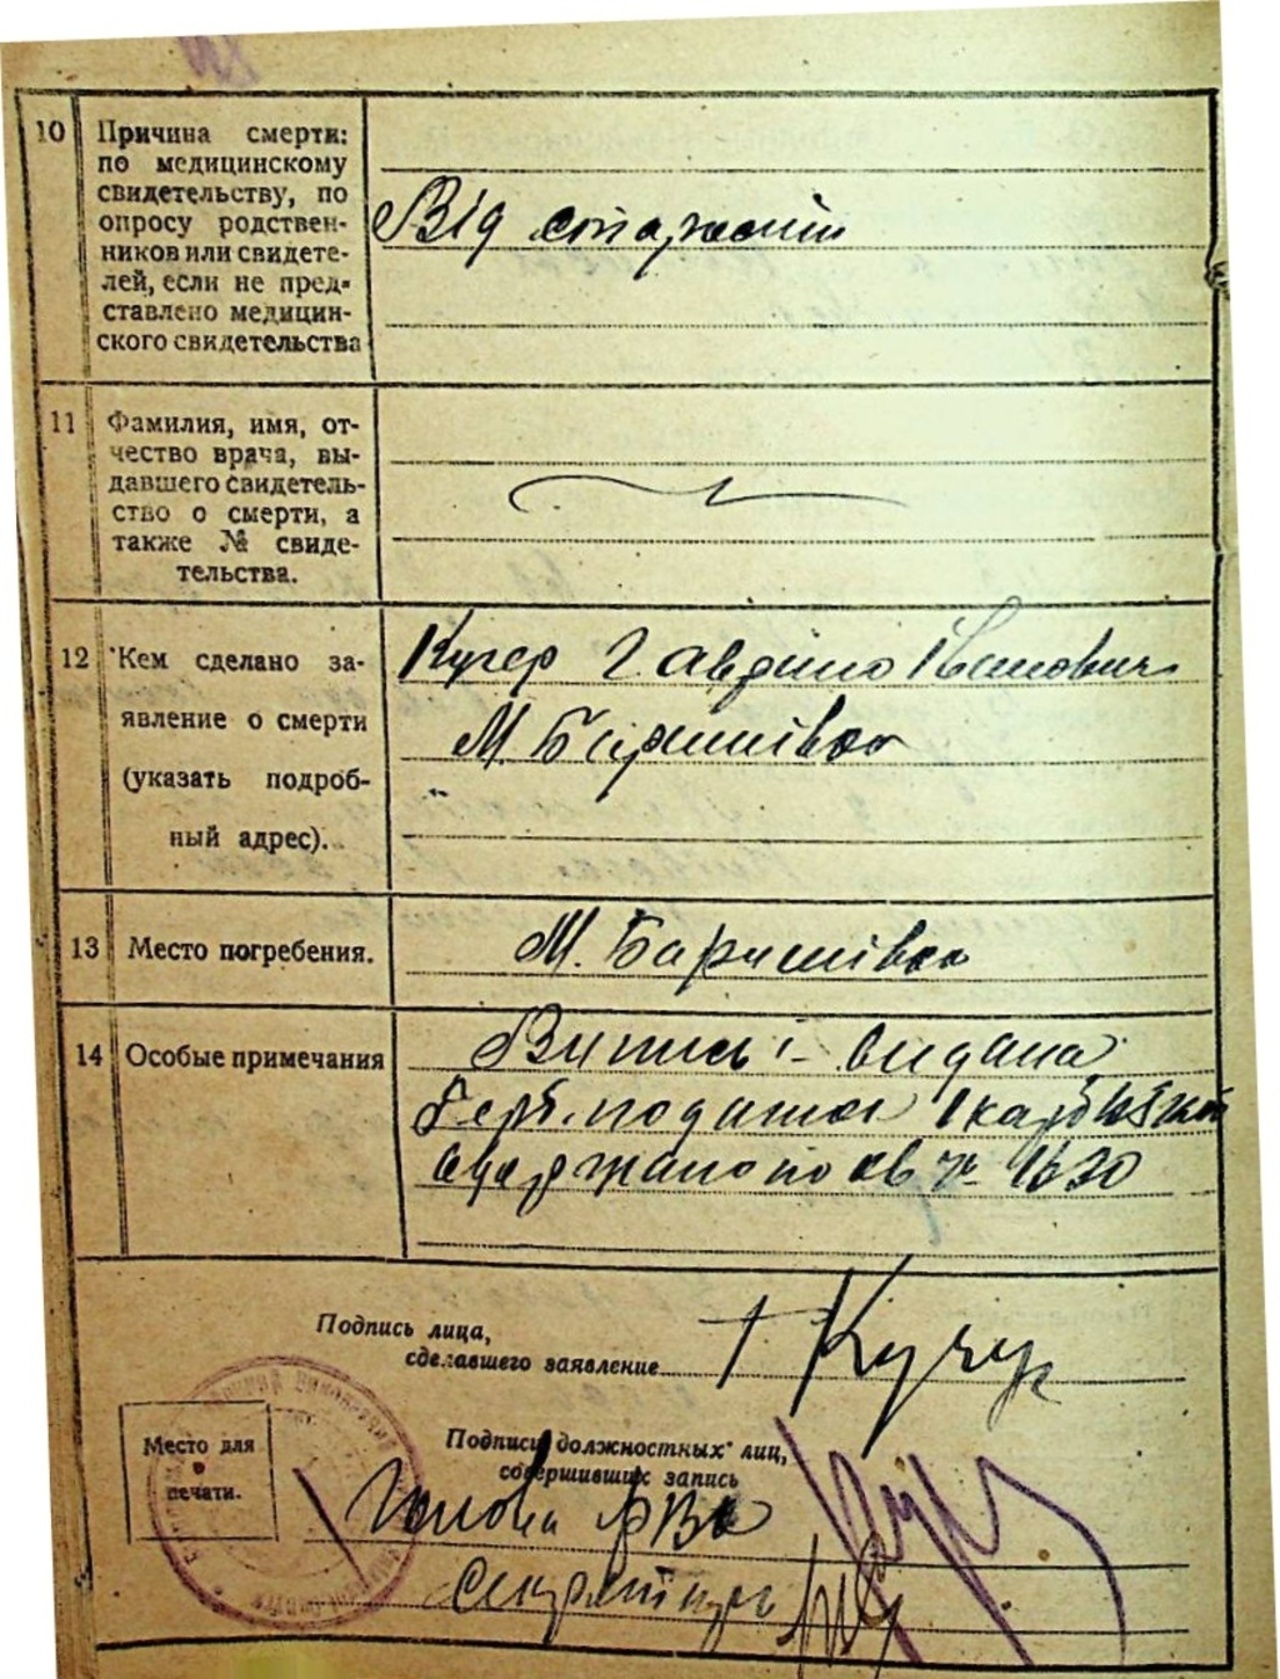 10
Причина смерти:
по медицинскому
свидетельству, по
опросу родствен-
ников или свидете-
лей, если не пред-
ставлено медицин-
ского свидетельства
Від
11
Фамилия, имя, от-
чество врача, вы-
давшего свидетель-
ство о смерти, а
также № свиде-
тельства.
12
Кем сделано за-
явление о смерти
(указать подроб-
ный адрес).
Кучер Іванович
М. Баришівка
13
Место погребения.
М. Баришівка
14
Особые примечания
Випись видана
Герб. податок
одержано по кв № 1630
Подпись лица,
сделавшего заявление
Г Кучер
Место для
печати.
Подписи должностных лиц,
совершивших запись
Голова
Секретар